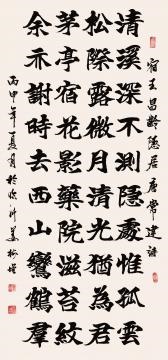 宿王昌齡隱居唐常建詩
清溪深不測隱處惟孤雲
松際露微月清光猶為君
茅亭宿花影藥院滋苔紋
余亦謝時去西山鸞鶴羣
丙申年夏月於